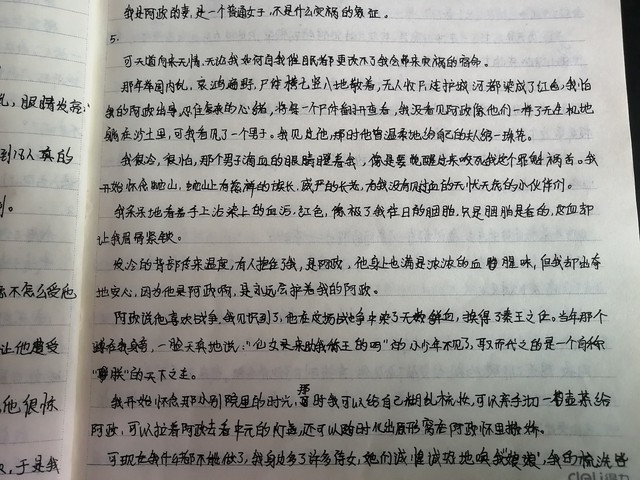 我是阿政的妻,是一个普通女子,不是什么灾祸的象征。
5.
可天道向来无情,无论我如何自我催眠都更改不了我会带来灾祸的宿命。
那年举国内乱,哀鸿遍野,尸体横七竖八地散着,无人收尸,连护城河都染成了红色,我怕
我的阿政出事,忍住复杂的心绪,将每一个尸体翻开查看,我没看见阿政像他们一样了无生机地
躺在沙土里,可我看见了一个男子。我见过他,那时他曾温柔地给自己的夫人绾一珠花。
我很冷,很怕,那个男子滴血的眼睛瞪着我,像是要爬起来咬死我这个罪魁祸首。我
开始怀念屿山,屿山上有慈祥的族长,威严的长老,为我没有见过血的无忧无虑的小伙伴们。
我呆呆地看着手上沾染上的血污,红色,像极了我往日的胭脂,只是胭脂是香的,这血却
让我眉眉紧锁。
发冷的背部传来温度,有人抱住了我,是阿政,他身上也满是浓浓的血腥味,但我却出奇
地安心,因为他是阿政啊,是永远会护着我的阿政。
阿政说他喜欢战争,我见识到了,他在这场战争中染了无数鲜血,换得了秦王之位。当年那个
蹲在我身旁,一脸天真地说:"仙女是来助我称王的吗"的小少年不见了,取而代之的是一个自称
"寡人"的天下之主。
我开始怀念那小别院里的时光,那时我可以给自己胡乱梳妆,可以亲手沏一壶茶给
阿政,可以拉着阿政去看中元的灯盏,还可以随时化出原形窝在阿政怀里撒娇。
可现在我什么都不能做了,我身边多了许多侍女,她们诚惶诚恐地唤我"娘娘",我的梳洗皆
乱,眼睛发亮:
到凡人真的
到。
示不怎么受他
让他遭受
他很怜
,于是我
deli 得力